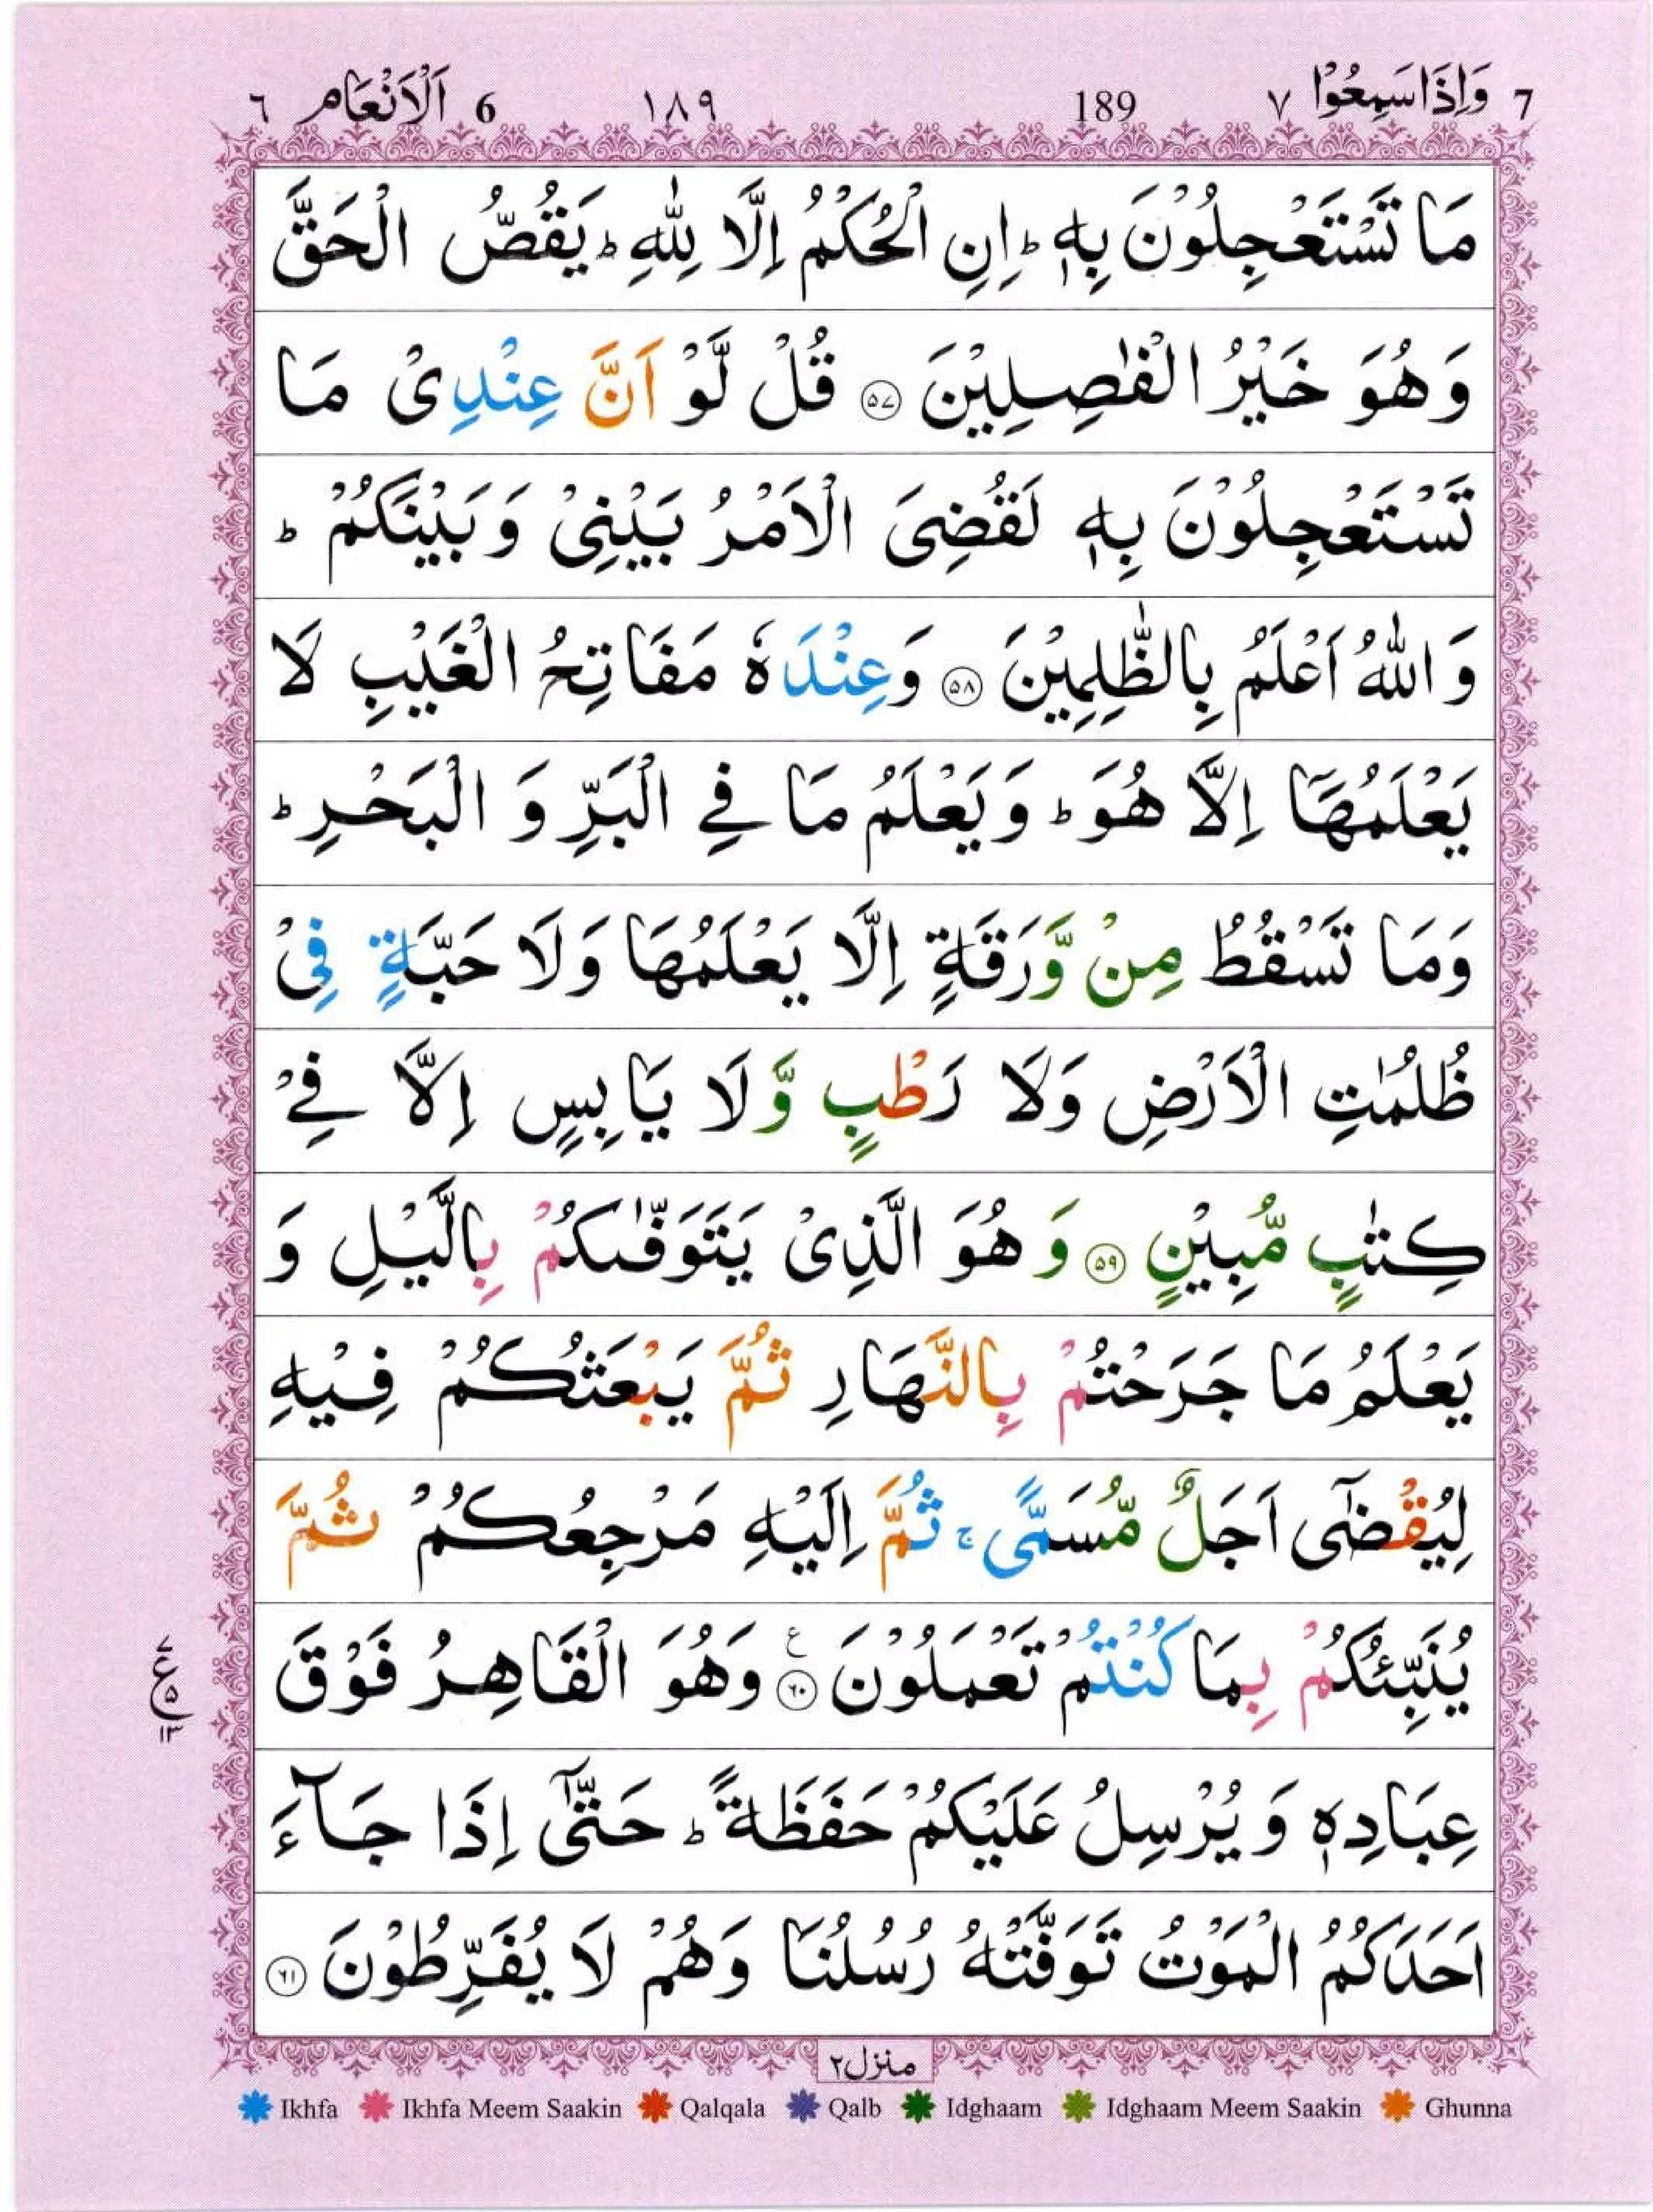 7 وَاِذَا سَمِعُوْا ٧ 189 ١٨٩ 6 اَلْاَنْعَام ٦
مَا تَسْتَعْجِلُوْنَ بِهٖ ؕ اِنِ الْحُكْمُ اِلَّا لِلّٰهِ ؕ يَقُصُّ الْحَقَّ
وَهُوَ خَيْرُ الْفٰصِلِيْنَ ۝٥٧ قُلْ لَّوْ اَنَّ عِنْدِىْ مَا
تَسْتَعْجِلُوْنَ بِهٖ لَقُضِىَ الْاَمْرُ بَيْنِىْ وَبَيْنَكُمْ ؕ
وَاللّٰهُ اَعْلَمُ بِالظّٰلِمِيْنَ ۝٥٨ وَعِنْدَهٗ مَفَاتِحُ الْغَيْبِ لَا
يَعْلَمُهَاۤ اِلَّا هُوَ ؕ وَيَعْلَمُ مَا فِى الْبَرِّ وَ الْبَحْرِ ؕ
وَمَا تَسْقُطُ مِنْ وَّرَقَةٍ اِلَّا يَعْلَمُهَا وَلَا حَبَّةٍ فِىْ
ظُلُمٰتِ الْاَرْضِ وَلَا رَطْبٍ وَّلَا يَابِسٍ اِلَّا فِىْ
كِتٰبٍ مُّبِيْنٍ ۝٥٩ وَ هُوَ الَّذِىْ يَتَوَفّٰٮكُمْ بِالَّيْلِ وَ
يَعْلَمُ مَا جَرَحْتُمْ بِالنَّهَارِ ثُمَّ يَبْعَثُكُمْ فِيْهِ
لِيُقْضٰٓى اَجَلٌ مُّسَمًّى ۚ ثُمَّ اِلَيْهِ مَرْجِعُكُمْ ثُمَّ
يُنَبِّئُكُمْ بِمَا كُنْتُمْ تَعْمَلُوْنَ ۝٦٠ ع وَهُوَ الْقَاهِرُ فَوْقَ
٧ ع ٥ ١٣
عِبَادِهٖ وَ يُرْسِلُ عَلَيْكُمْ حَفَظَةً ؕ حَتّٰٓى اِذَا جَآءَ
اَحَدَكُمُ الْمَوْتُ تَوَفَّتْهُ رُسُلُنَا وَهُمْ لَا يُفَرِّطُوْنَ ۝٦١
منزل ٢
Ikhfa Ikhfa Meem Saakin Qalqala Qalb Idghaam Idghaam Meem Saakin Ghunna